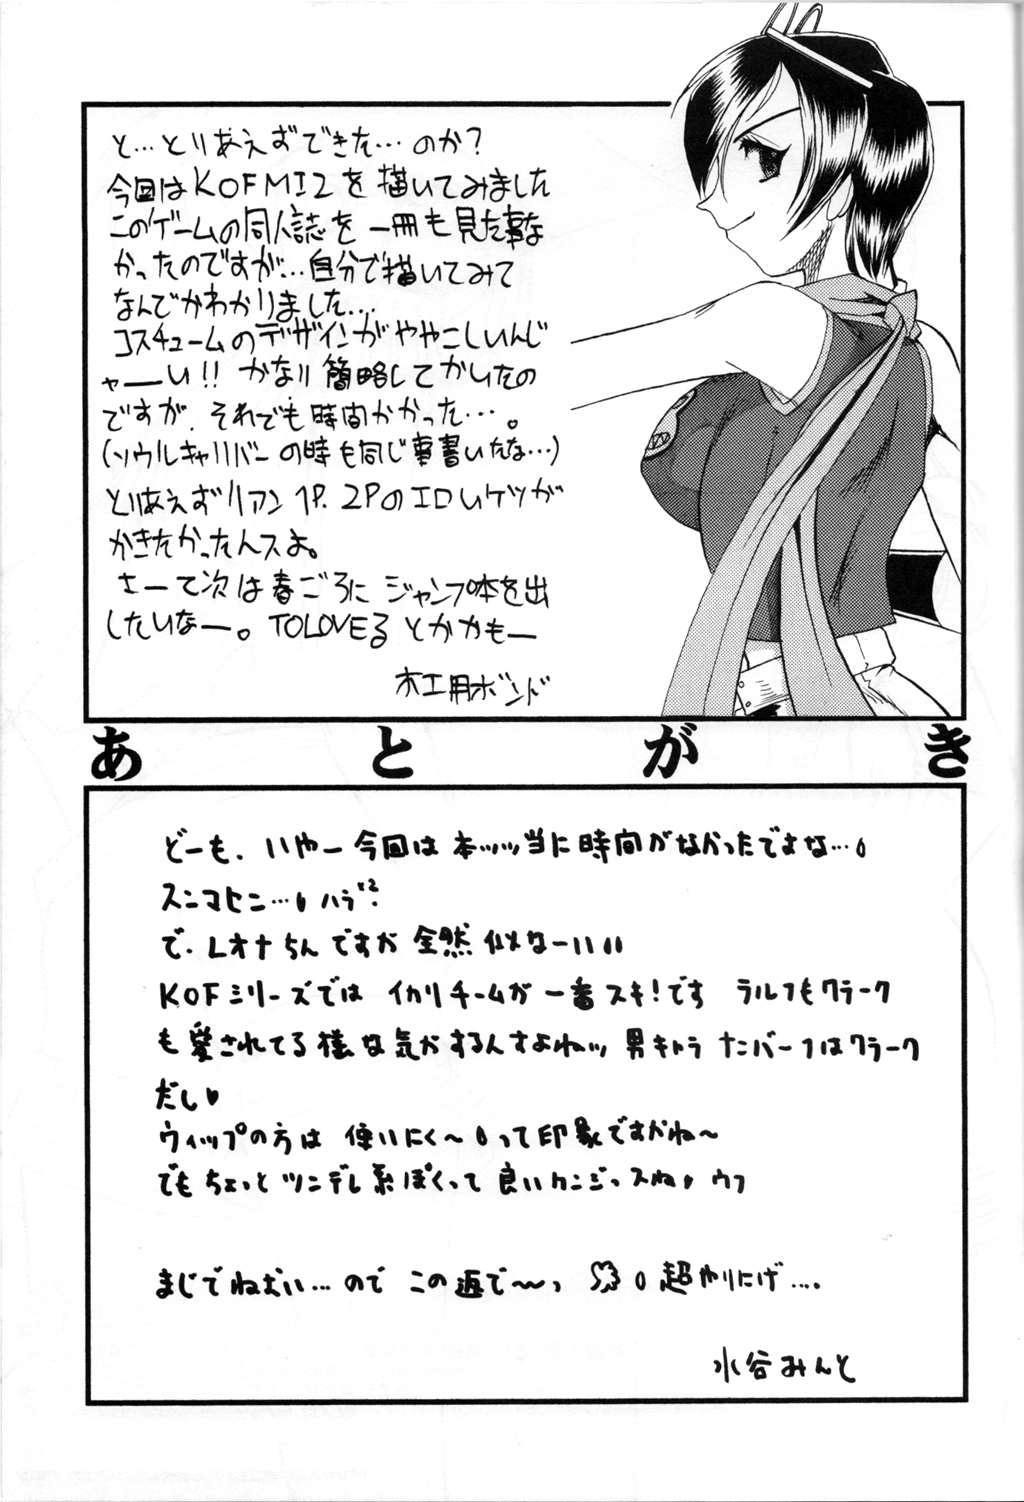 と…とりあえずできた…のか?
今回はKOFMI2を描いてみました
このゲームの同人誌を一冊も見た事な
かったのですが…自分で描いてみて
なんでかわかりました…
コスチュームのデザインがややこしいんじ
ゃーい!!かなり簡略してかいたの
ですが、それでも時間かかった…。
(ソウルキャリバーの時も同じ事書いたな…)
とりあえずリアン1P.2Pのエロいケツが
かきたかったんスよ。
さーて次は春ごろにジャンプ本を出
したいなー。TOLOVEるとかかもー
木工用ボンド
あとがき
どーも、いやー今回は本ッッ当に時間がなかったですよな…
スンマヒン…
で、レオナちんですが全然似なーいい
KOFシリーズではイカリチームが一番スキ!です ラルフもクラーク
も愛されてる様な気がするんすよねッ 男キャラナンバー1はクラーク
だし♥
ウィップの方は使いにく〜って印象ですかね〜
でもちょっとツンデレ系ぽくって良いカンジっスね♥ウフ
まじでねむい…のでこの辺で〜っ 超やりにげ….
水谷みんと